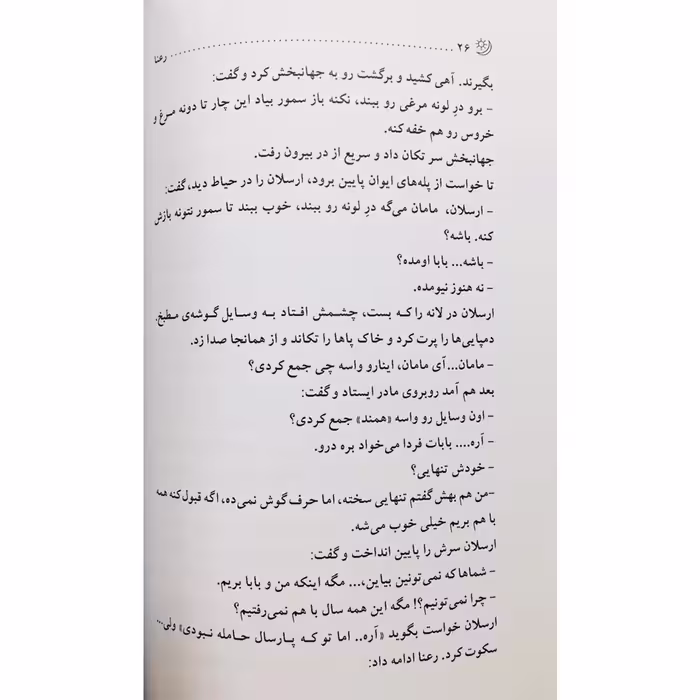 ۲۶ رعنا
بگیرند. آهی کشید و برگشت رو به جهانبخش کرد و گفت:
- برو درِ لونه مرغی رو ببند، نکنه باز سمور بیاد این چار تا دونه مرغ و
خروس رو هم خفه کنه.
جهانبخش سر تکان داد و سریع از در بیرون رفت.
تا خواست از پله‌های ایوان پایین برود، ارسلان را در حیاط دید، گفت:
- ارسلان، مامان می‌گه درِ لونه رو ببند، خوب ببند تا سمور نتونه بازش
کنه. باشه؟
- باشه... بابا اومده؟
- نه هنوز نیومده.
ارسلان در لانه را که بست، چشمش افتاد به وسایل گوشه‌ی مطبخ.
دمپایی‌ها را پرت کرد و خاک پاها را تکاند و از همانجا صدا زد.
- مامان...آی مامان، اینارو واسه چی جمع کردی؟
بعد هم آمد روبروی مادر ایستاد و گفت:
- اون وسایل رو واسه «همند» جمع کردی؟
- آره.... بابات فردا می‌خواد بره درو.
- خودش تنهایی؟
-من هم بهش گفتم تنهایی سخته، اما حرف گوش نمی‌ده، اگه قبول کنه همه
با هم بریم خیلی خوب می‌شه.
ارسلان سرش را پایین انداخت و گفت:
- شماها که نمی‌تونین بیاین،... مگه اینکه من و بابا بریم.
- چرا نمی‌تونیم؟! مگه این همه سال با هم نمی‌رفتیم؟
ارسلان خواست بگوید «آره.. اما تو که پارسال حامله نبودی» ولی...
سکوت کرد. رعنا ادامه داد: